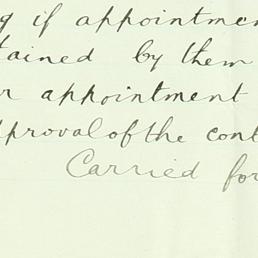 g if appointmen
tained by them
r appointment
pproval of the cont
Carried for